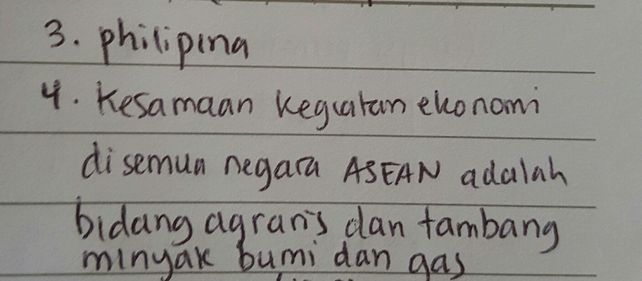 3. philipina
4. Kesamaan kegiatan ekonomi
di semua negara ASEAN adalah
bidang agraris dan tambang
minyak bumi dan gas